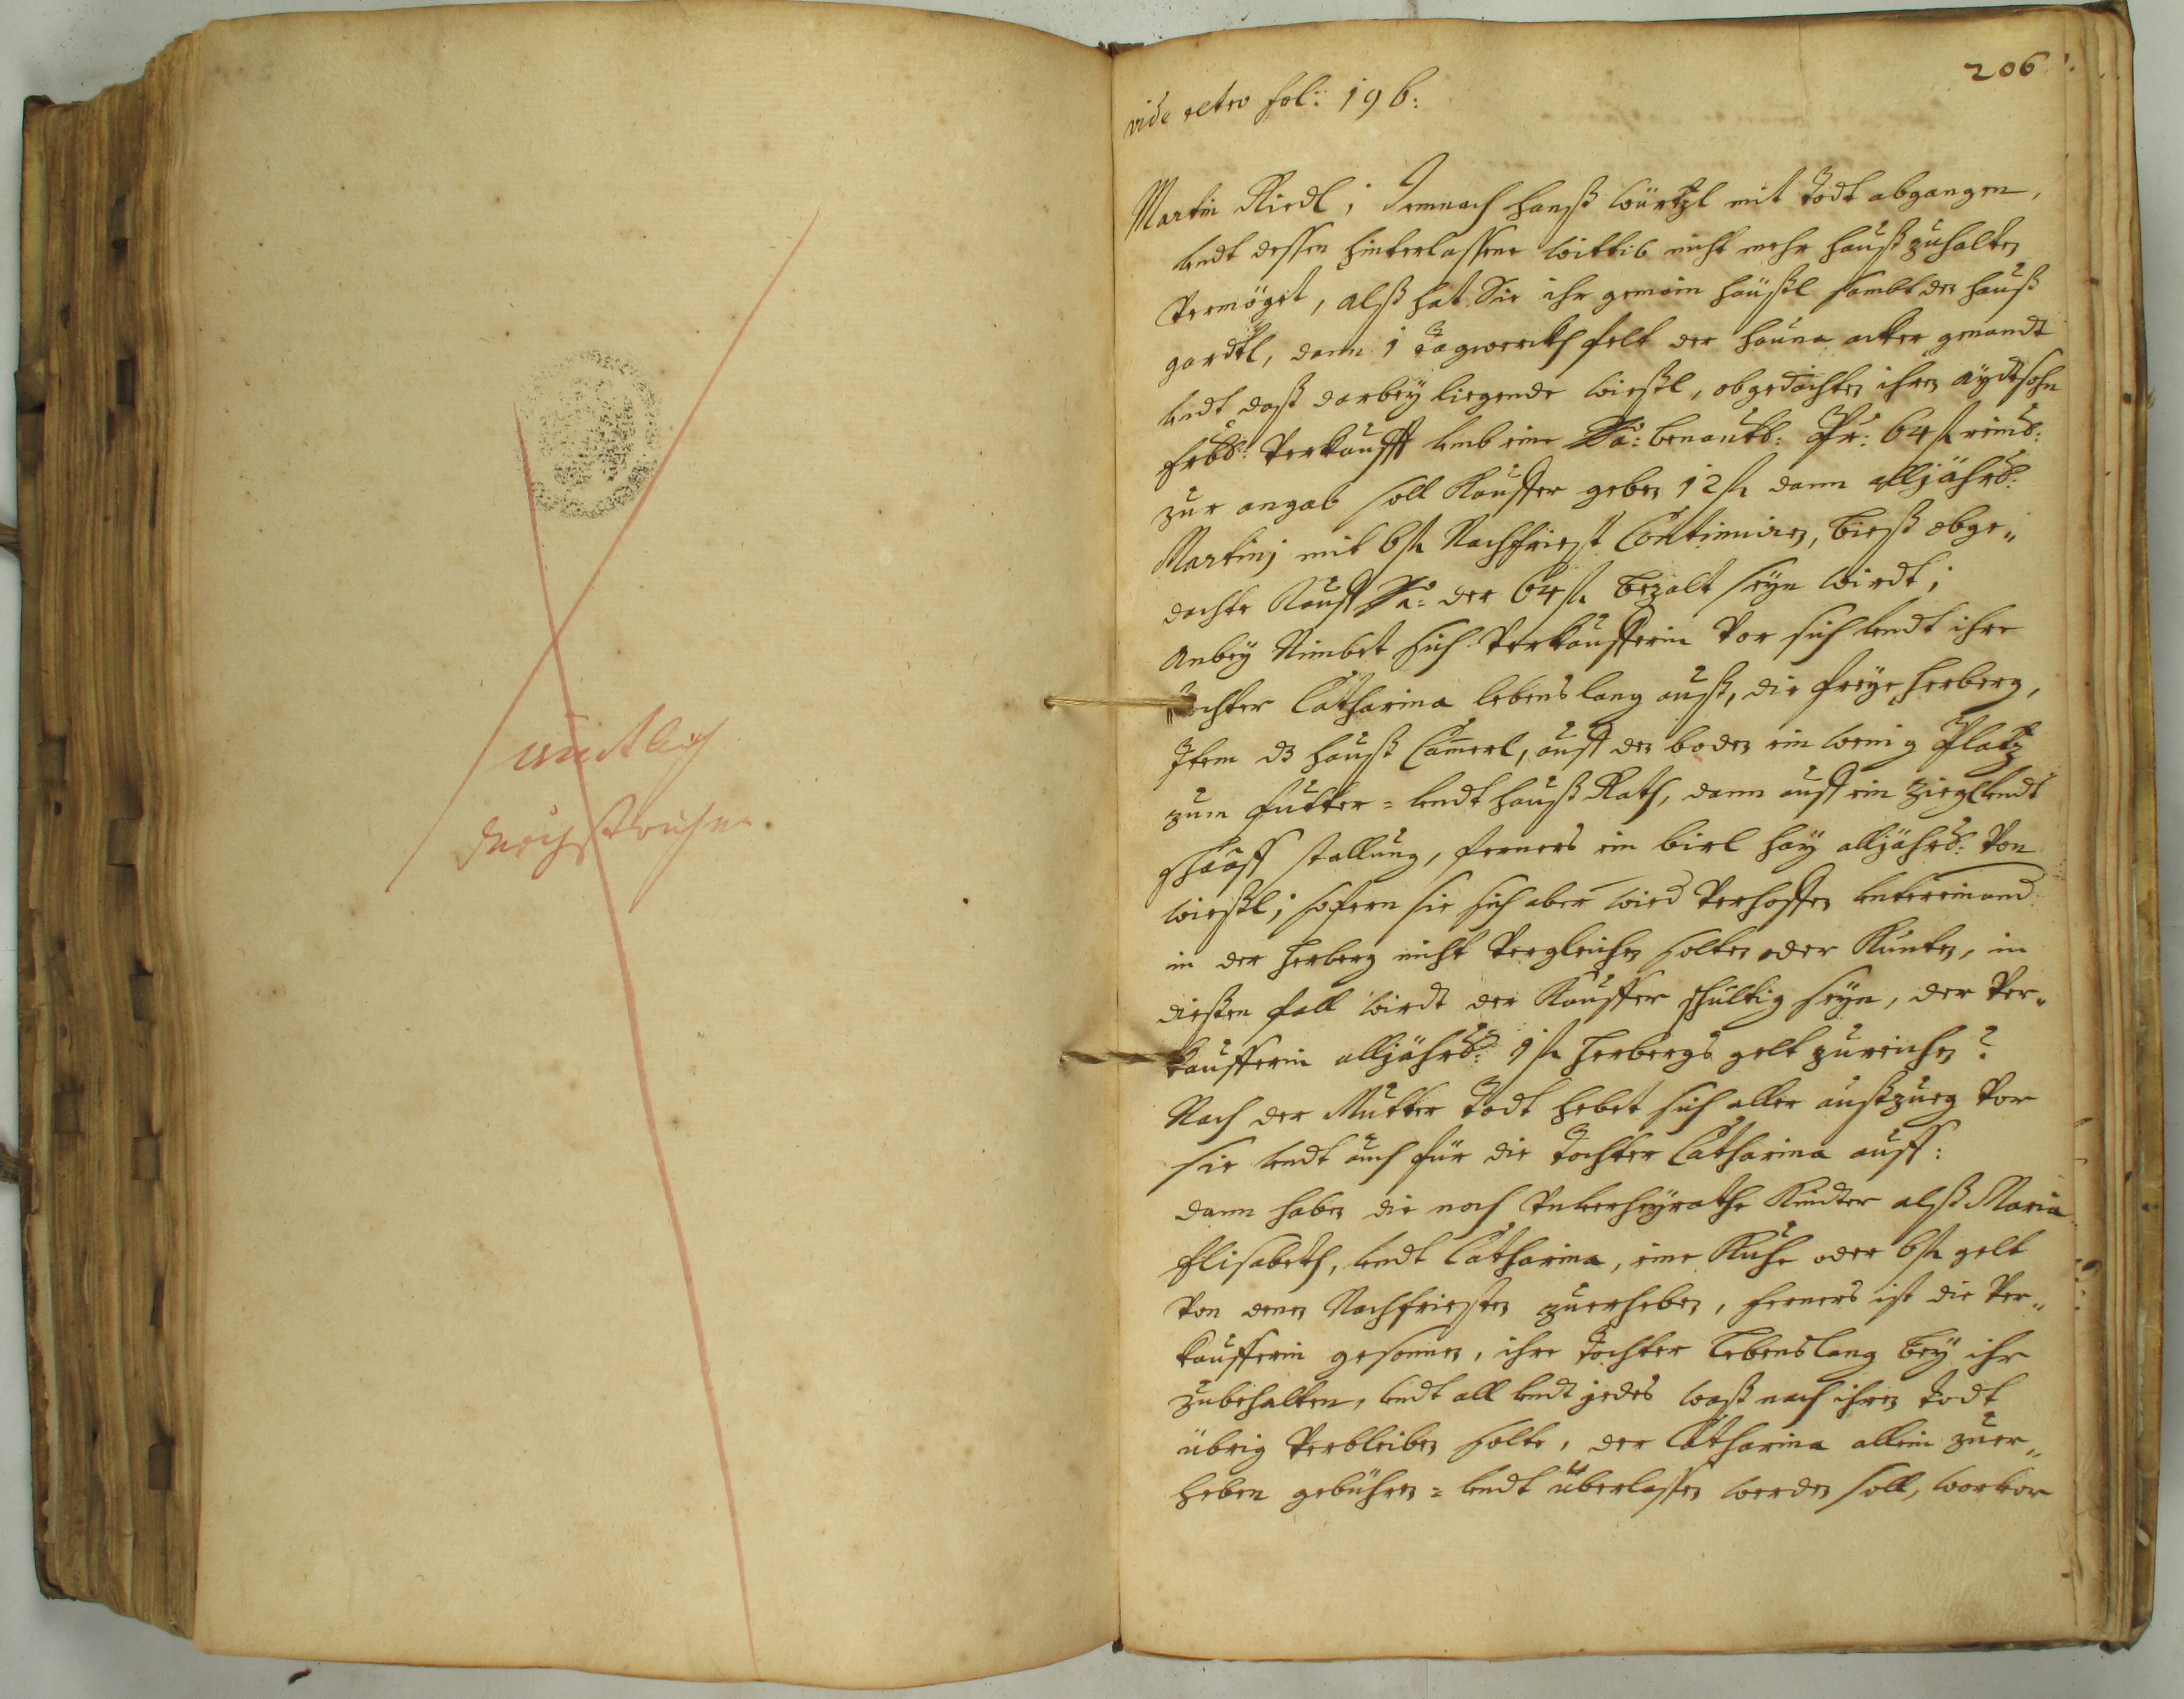 amtlich
durchstrichen.
206.
vide retro fol: 196:
Martin Riedl; Demnach Hanß Würtzl mit todt abgangen,
undt dessen hinterlassene Wittib nicht mehr haußzuhalten
vermöget, alß hat Sie ihr gemein häußl sambt den hauß
gardtl, dann 1 tagwerckh felt der acker genandt
undt daß darbey liegende Wießl, obgedachten ihren aydtsohn
Erbl: verkaufft umb eine Sa: benantl: Pr: 64 fl reinl:
zur angab soll Kauffer geben 12 fl dann alljährl:
Martinj mit 6 fl Nachfriest Continuiren, bieß obge„
dachte Kauff Sa: der 64 fl bezalt seyn wirdt;
Anbey Nimbet sich Verkaufferin vor sich undt ihre
Tochter Catharina lebenslang auß, die freye herberg,
Item dz hauß Camerl, auff den boden ein wenig Platz
zum futter = undt hauß Rath, dann auff ein Zigl undt
schaaff stallung, ferners ein birl hay alljährl: von
Wießl; sofern sie sich aber wied verhoffen untereinand:
in der herberg nicht vergleichen solten oder Kunten, in
dießen fall wirdt der Kauffer schultig seyn, der Ver„
kaufferin alljährl: 1 fl herbergs gelt zureichen:
Nach der Mutter todt hebet sich aller außzueg vor
sie undt auch für die tochter Catharina auff:
dann haben die noch unverheyrathe Kindter alß Maria
Elisabeth, undt Catharina, eine Kuhe oder 6 fl gelt
von denen Nachfriesten zuerheben, ferners ist die Ver„
kaufferin gesonnen, ihre tochter lebenslang bey ihr
zubehalten, undt all undt jedes waß nach ihren todt
übrig verbleiben solte, der Catharina allein zuer„
heben gebühren = undt überlassen werden soll, worvor